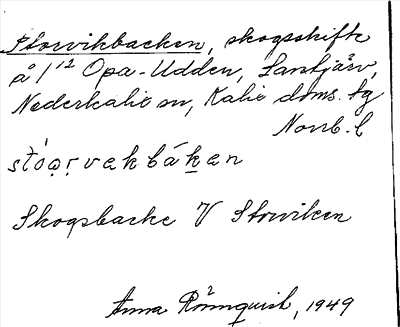 Storvikbacken, skogsskifte
å 1/12 Opa-Udden, Santjärv,
Nederkalix sn, Kalix doms. tg
Norrb. l
stóọṛvekbáken
Skogsbacke V Storviken
Anna Rönnquist, 1949